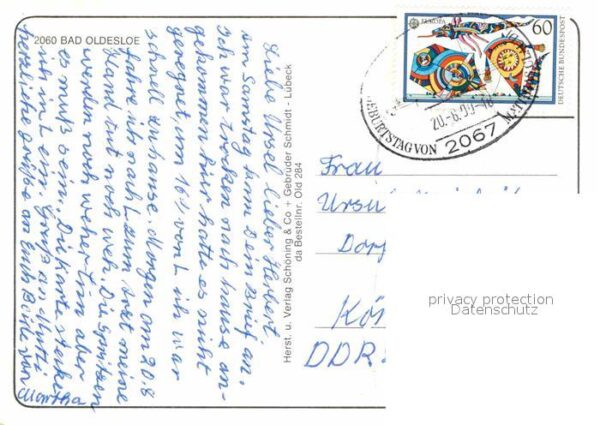 2060 BAD OLDESLOE
Liebe Ursel lieber Herbert
am Samstag kam Dein Brief an.
Ich war trocken nach hause
gekommen, hier hatte es nicht
geregnet, um 16½ war ich
schnell zu hause. Morgen am 20.6
fahre ich nach zum Arzt meine
Hand ist noch weh. Die Spritzen
werden noch weher tun aber
es muß sein. Die Karte stecke
ich in den
herzliche Grüße an Euch Beide von
Martha
Herst. u. Verlag Schöning & Co + Gebrüder Schmidt - Lübeck
da Bestellnr. Old 284
EUROPA
60
DEUTSCHE BUNDESPOST
GEBURTSTAG VON
20.-6.89-18
2067
Frau
Ursu
Dorf
Kös
DDR
privacy protection
Datenschutz